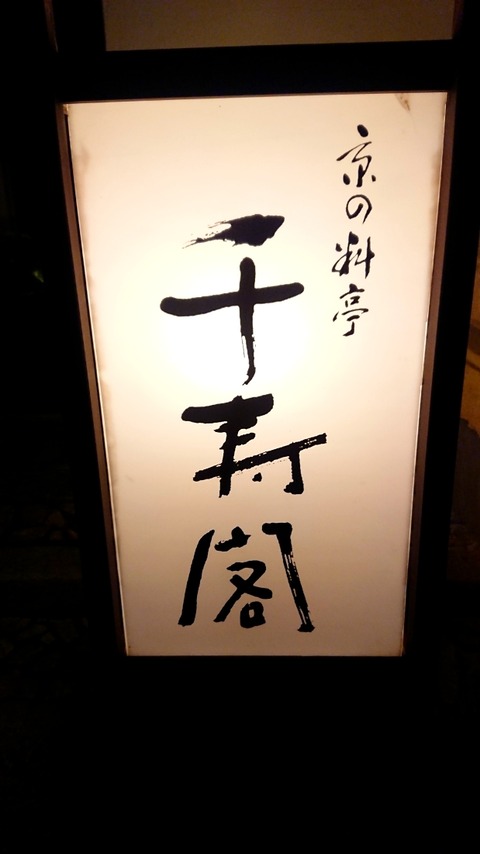 京の料亭
千寿閣